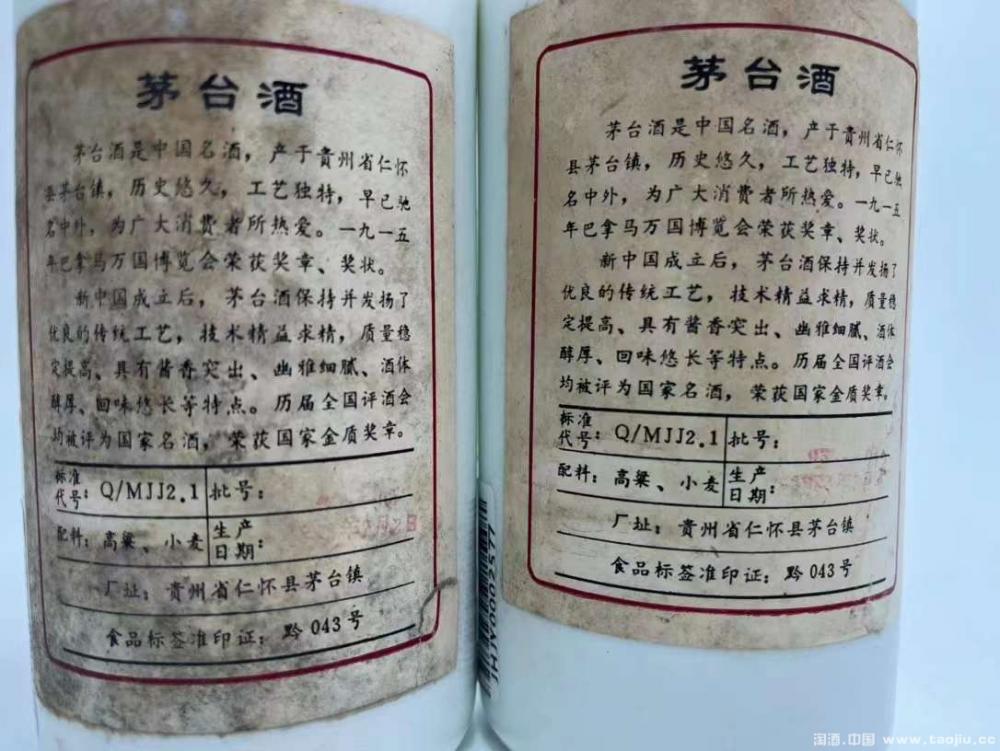 茅台酒
茅台酒是中国名酒，产于贵州省仁怀
县茅台镇，历史悠久，工艺独特，早已驰
名中外，为广大消费者所热爱。一九一五
年巴拿马万国博览会荣获奖章、奖状。
新中国成立后，茅台酒保持并发扬了
优良的传统工艺，技术精益求精，质量稳
定提高、具有酱香突出、幽雅细腻、酒体
醇厚、回味悠长等特点。历届全国评酒会
均被评为国家名酒，荣获国家金质奖章。
标准代号：Q/MJJ2.1 批号：
配料：高粱、小麦 生产日期：
厂址：贵州省仁怀县茅台镇
食品标签准印证：黔 043 号
茅台酒
茅台酒是中国名酒，产于贵州省仁怀
县茅台镇，历史悠久，工艺独特，早已驰
名中外，为广大消费者所热爱。一九一五
年巴拿马万国博览会荣获奖章、奖状。
新中国成立后，茅台酒保持并发扬了
优良的传统工艺，技术精益求精，质量稳
定提高、具有酱香突出、幽雅细腻、酒体
醇厚、回味悠长等特点。历届全国评酒会
均被评为国家名酒，荣获国家金质奖章。
标准代号：Q/MJJ2.1 批号：
配料：高粱、小麦 生产日期：
厂址：贵州省仁怀县茅台镇
食品标签准印证：黔 043 号
淘酒.中国 www.taojiu.cc